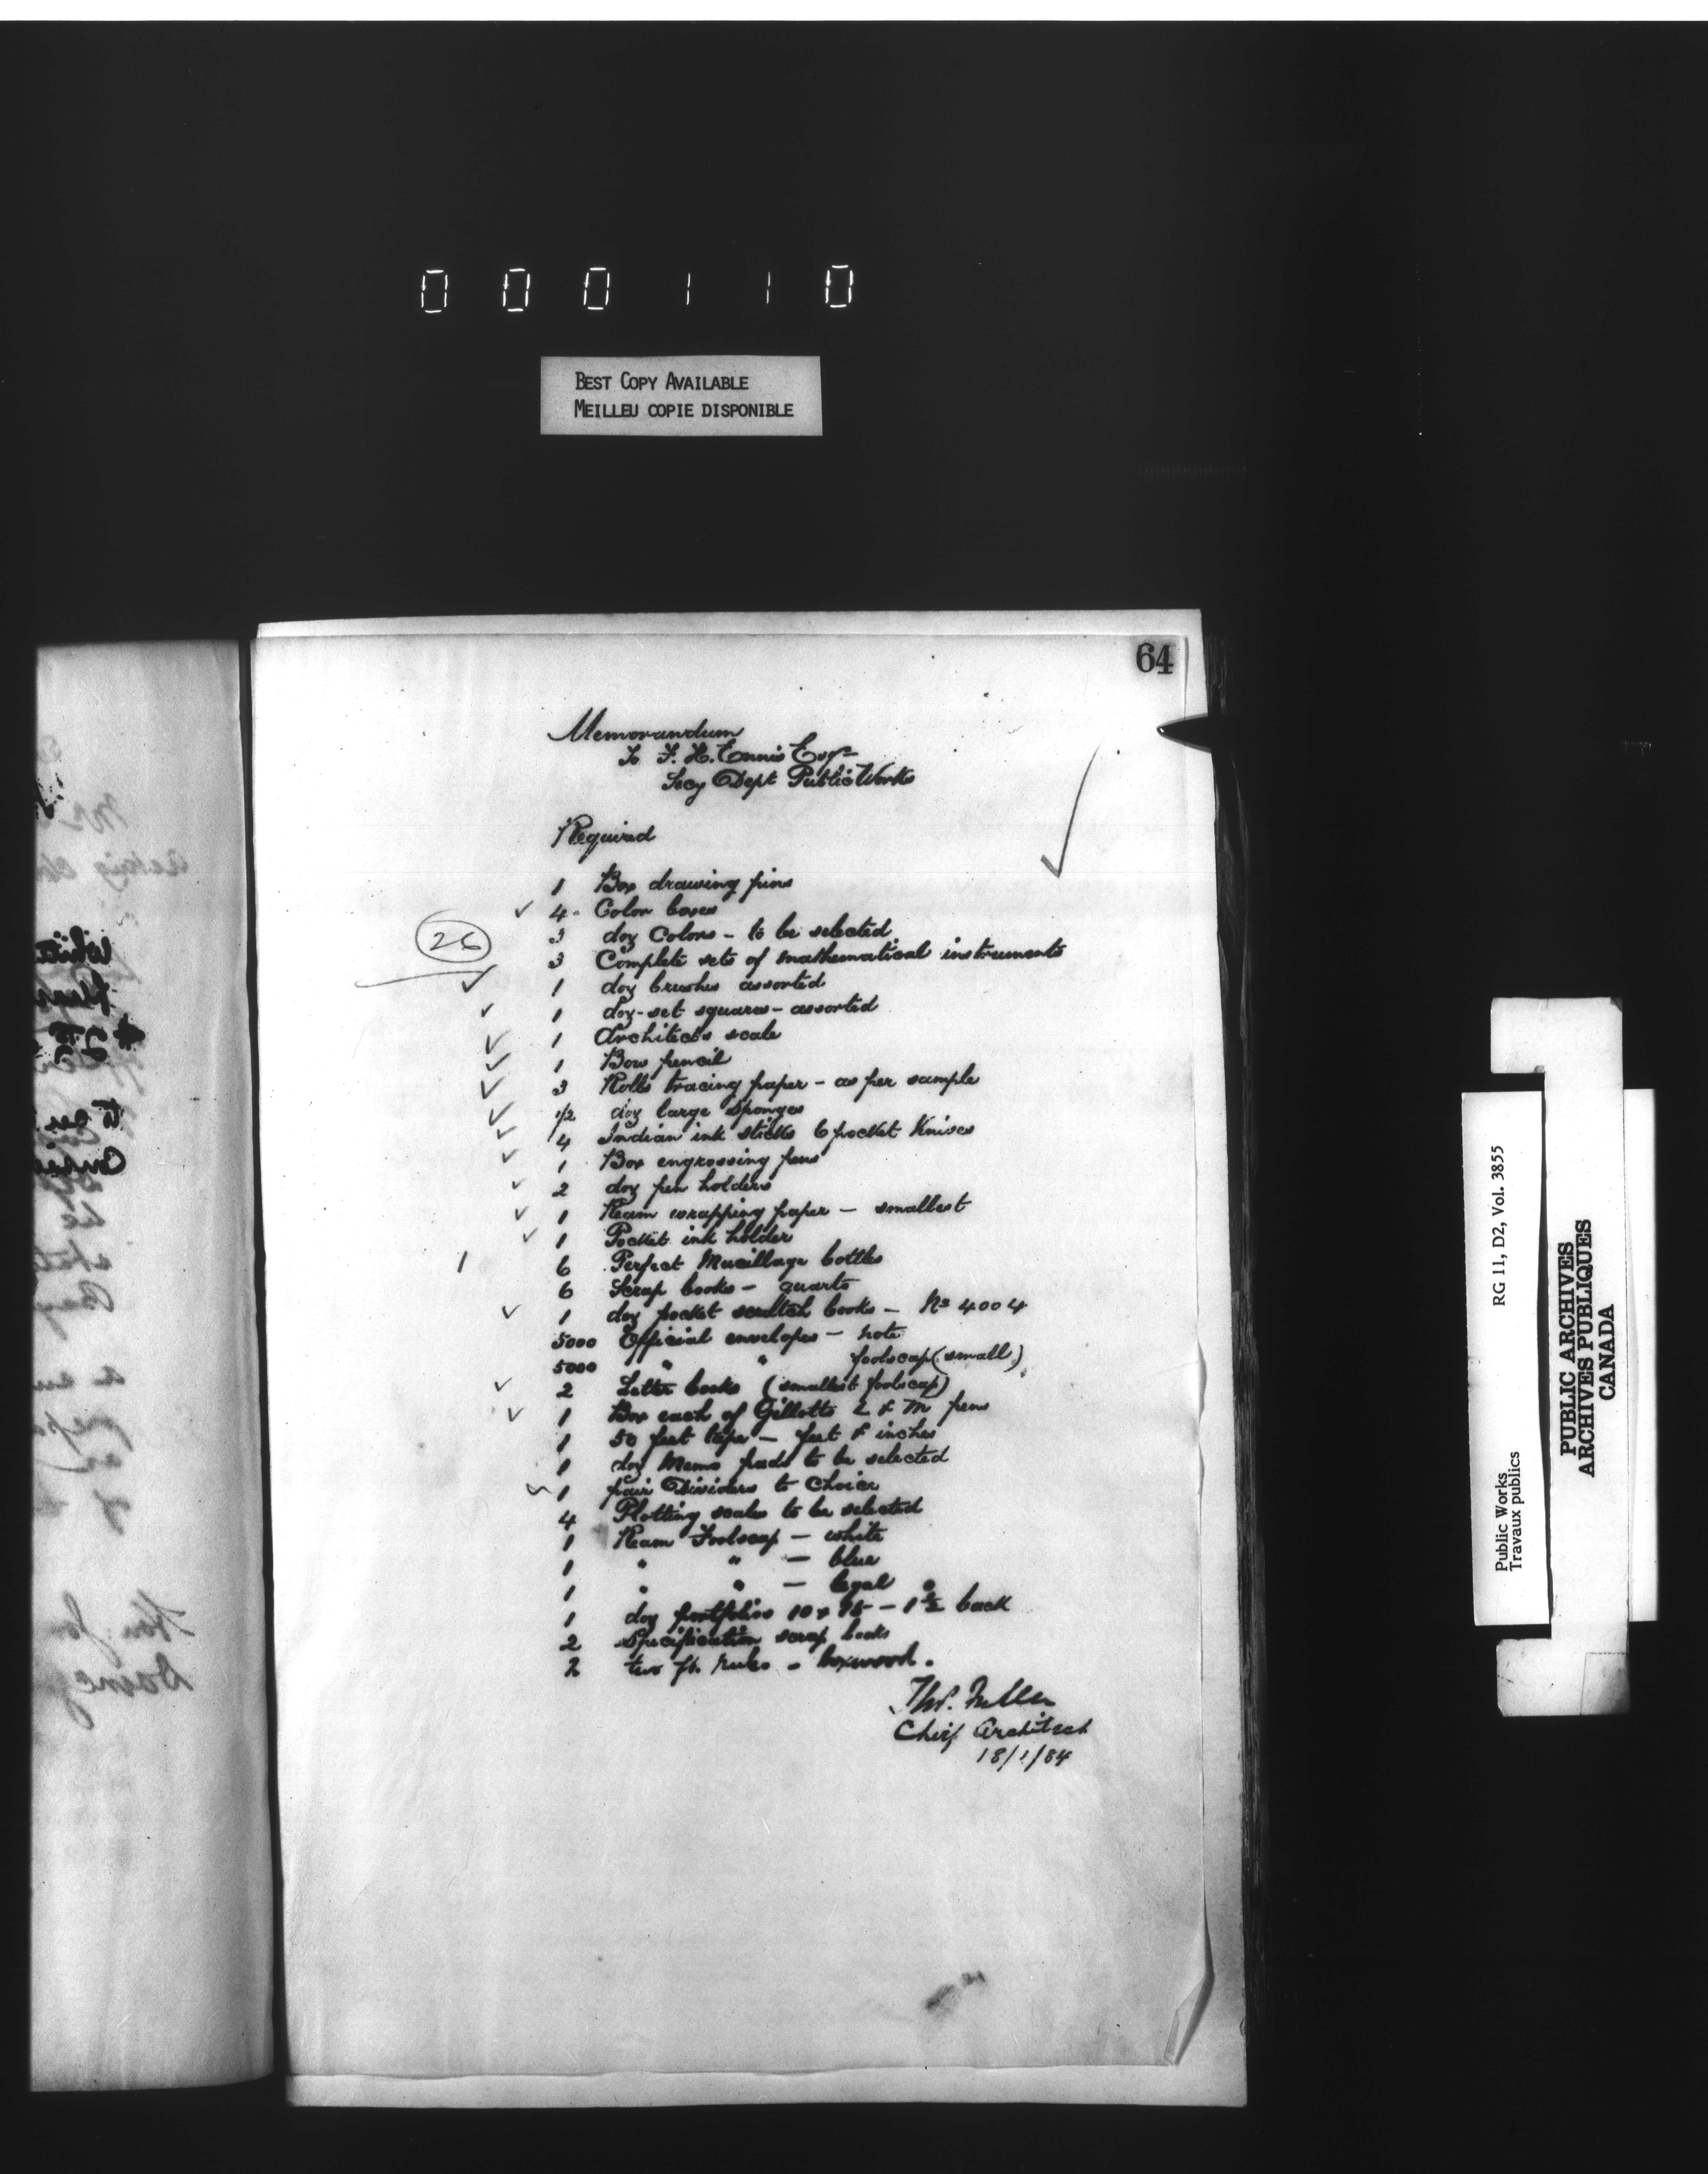 000110
BEST COPY AVAILABLE
MEILLEU COPIE DISPONIBLE
64
Memorandum
To F. H. Ennis Esqr
Secy Dept Public Works
Required
1 Box drawing pins
✓ 4 - Color boxes
26
3 doz Colors - to be selected
3 Complete sets of mathematical instruments
✓ 1 doz brushes assorted
✓ 1 doz - set squares - assorted
✓ 1 Architects scale
✓ 1 Bow pencil
✓ 3 Rolls tracing paper - as per sample
✓ 1/2 doz large Sponges
✓ 4 Indian ink sticks 6 pocket Knives
✓ 1 Box engrossing pens
✓ 2 doz pen holders
✓ 1 Ream wrapping paper - smallest
✓ 1 Pocket ink holder
1 6 Perfect Mucillage bottles
6 Scrap books - quarto
✓ 1 doz pocket scratch books - No 4004
5000 Official envelopes - note
5000 " " foolscap (small)
✓ 2 Letter books (smallest foolscap)
✓ 1 Box each of Gillotts E & M pens
1 50 feet tape - feet & inches
1 doz Memo pads to be selected
✓ 1 pair Dividers to Choice
4 Plotting scales to be selected
1 Ream Foolscap - white
1 " " - blue
1 " " - legal
1 doz portfolios 10 x 15 - 1 1/2 back
2 Specification scrap books
2 two ft. rules - boxwood.
Thos. Fuller
Chief Architect
18/1/84
Public Works
Travaux publics
RG 11, D2, Vol. 3855
PUBLIC ARCHIVES
ARCHIVES PUBLIQUES
CANADA